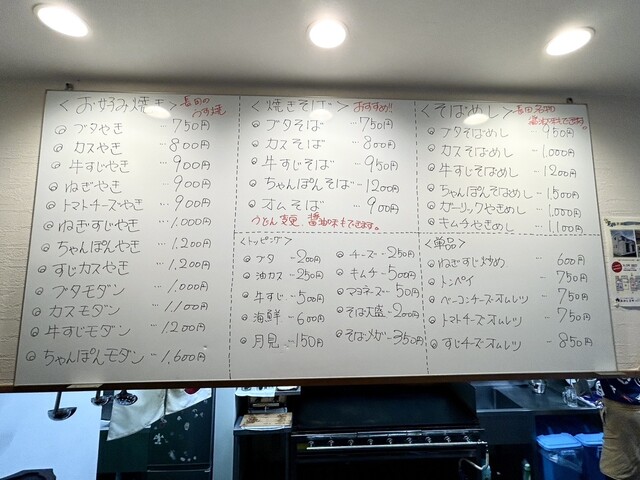 <お好み焼き> 長田のうす焼
◎ ブタやき … 750円
◎ カスやき … 800円
◎ 牛すじやき … 900円
◎ ねぎやき … 900円
◎ トマトチーズやき … 900円
◎ ねぎすじやき … 1.000円
◎ ちゃんぽんやき … 1.200円
◎ すじカスやき … 1.200円
◎ ブタモダン … 1.000円
◎ カスモダン … 1.100円
◎ 牛すじモダン … 1200円
◎ ちゃんぽんモダン … 1.600円
<焼きそば> おすすめ!!
◎ ブタそば … 750円
◎ カスそば … 800円
◎ 牛すじそば … 950円
◎ ちゃんぽんそば … 1200円
◎ オムそば … 900円
うどん変更、醤油味もできます。
<トッピング>
◎ ブタ … 200円
◎ 油カス … 250円
◎ 牛すじ … 500円
◎ 海鮮 … 600円
◎ 月見 … 150円
◎ チーズ … 250円
◎ キムチ … 500円
◎ マヨネーズ … 50円
◎ そば大盛 … 200円
◎ そばメガ … 350円
<そばめし> 長田名物
醤油味もできます。
◎ ブタそばめし 950円
◎ カスそばめし … 1.000円
◎ 牛すじそばめし … 1200円
◎ ちゃんぽんそばめし … 1.500円
◎ ガーリックやきめし … 1.000円
◎ キムチやきめし … 1.100円
<単品>
◎ ねぎすじ炒め … 600円
◎ トンペイ … 750円
◎ ベーコンチーズオムレツ … 750円
◎ トマトチーズオムレツ … 750円
◎ すじチーズオムレツ … 850円